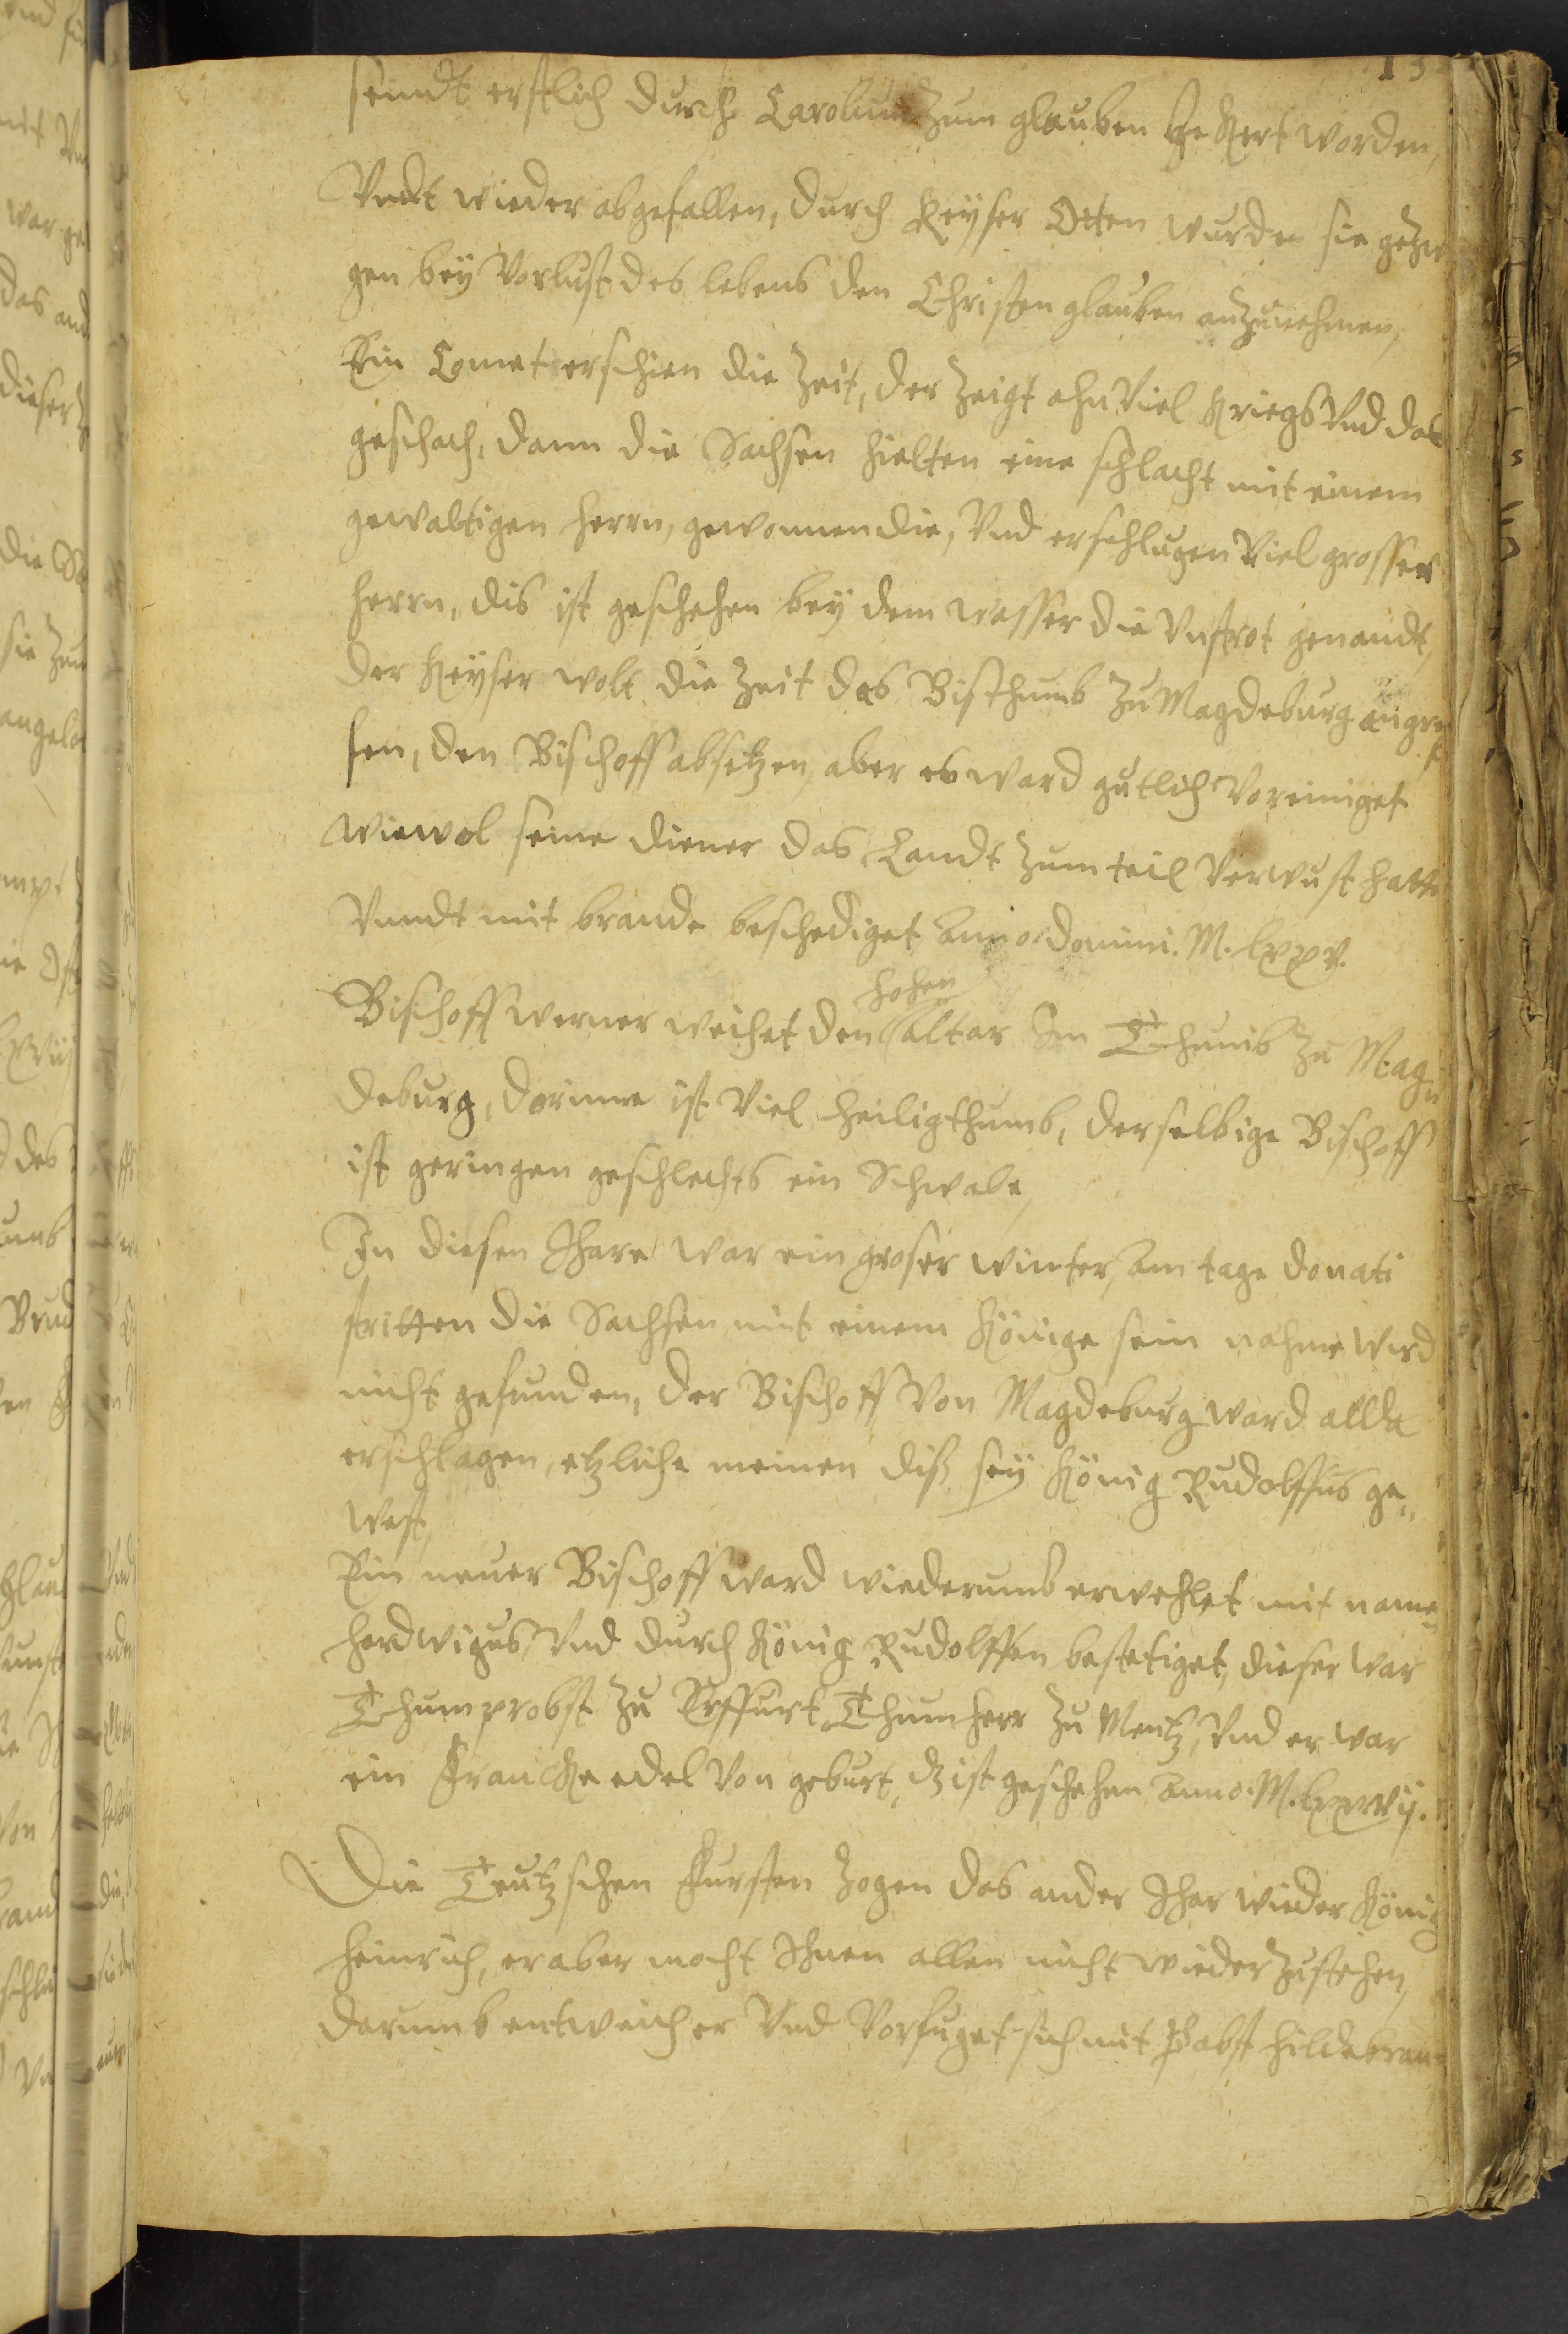 13
seindt erstlich durch Carolum zum glauben bekert worden,
Vndt wieder abgefallen, durch Keyser Otten wurden sie gezw
gen bey Vorlust des lebens den Christen glauben anzunehmen,
Ein Comet erschien die Zeit, der Zeigt ahn Viel Kriegs Vnd das
geschach, dann die Sachsen hielten eine schlacht mit einem
gewaltigen herrn, gewonnen die, Vnd erschlugen Viel grosser
herrn, dis ist geschehen bey dem wasser die Vnstrot genandt,
der Keyser wolt die Zeit das Bisthumb Zu Magdeburg angreif
fen, den Bischoff absetzen, aber es ward gutlich Voreiniget
wiewol seine diener das Landt Zum teil Verwust hatte
Vnndt mit brande beschediget Anno domini. M. lxxv.
Bischoff werner weihet den hohen altar Im Thumb Zu Mag
deburg, dorinne ist Viel heiligthumb, derselbige Bischoff
ist geringen geschlechts ein Schwabe,
In diesen Ihare war ein groser winter, Am tage donati
stritten die Sachsen mit einem Könige sein nahme wird
nicht gefunden, der Bischoff Von Magdeburg ward allda
erschlagen, etzliche meinen diß sey König Rudolffus ge„
west,
Ein neuer Bischoff ward wiederumb erwehlet mit name
hardwigus, Vnd durch König Rudolffen bestetiget, dieser war
Thumprobst Zu Erffurt, Thumherr Zu Mentz, Vnd er war
ein Francke edel Von geburt, dz ist geschehen Anno. M. lxxvij.
Die Teutzschen Fursten Zogen das ander Ihar wieder König
Heinrich, er aber mocht Ihnen allen nicht wieder Zustehen,
darumb entweich er Vnd Vorfuget sich mit Pabst Hildebran